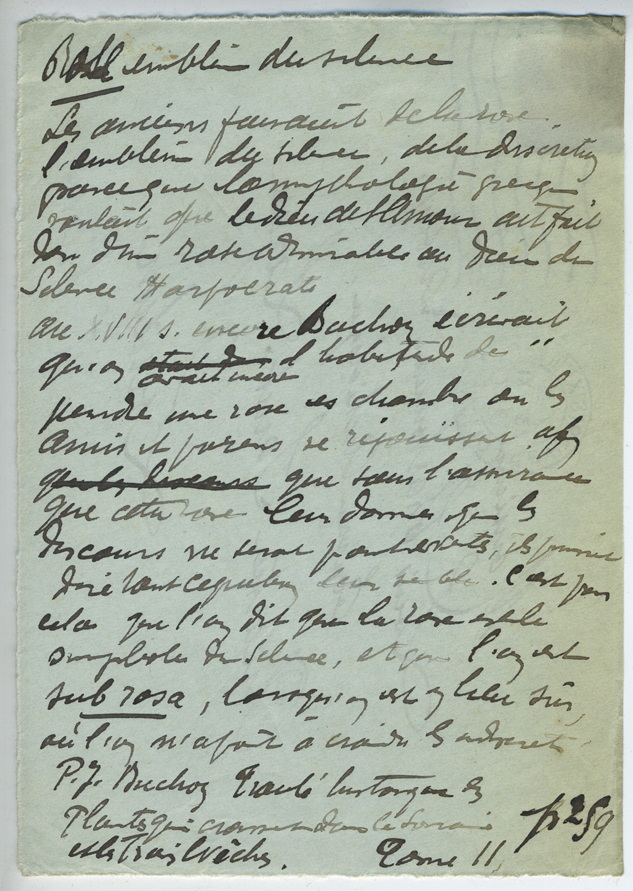 Rose emblème du silence
Les anciens faisaient de la rose
l'emblème du silence, de la discrétion
parce que la mythologie grecque
voulait que le dieu de l'Amour ait fait
don d'une rose admirable au Dieu du
Silence Harpocrate
au XVIII s. encore Buchoz écrivait
qu'on avait encore l'habitude de "
pendre une rose es chambre où les
amis et parens se réjouissent afin
que sous l'assurance
que cette rose leur donne que les
discours ne seront point , ils pourront
dire tout ce . C'est pour
cela que l'on dit que la rose est le
symbole du Silence, et que l'on est
sub rosa, lorsqu'on est en lieu sûr,
où l'on n'a point à craindre les indiscrets
P. J. Buchoz Traité historique des
Plantes qui croissent dans la Lorraine
et les trois Evêchés. Tome II, p 259